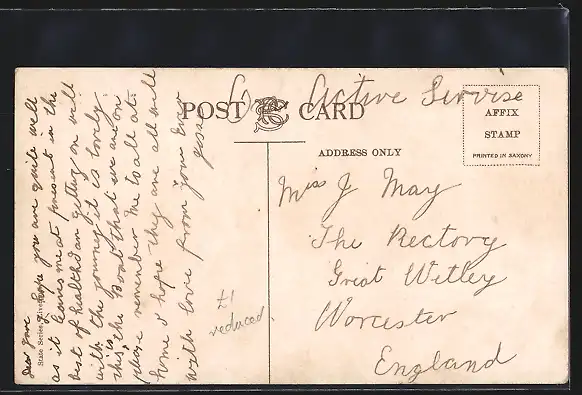 On Active Servise
POST CARD
ADDRESS ONLY
AFFIX
STAMP
PRINTED IN SAXONY
Miss J May
The Rectory
Great Witley
Worcester
England
£1
reduced
State Series, Liverpool
Dear
hope you are quite well
as it leaves me at present in the
best of health I am getting on well
with the journey it is lovely
this is the Boat that we are on
please remember me to all at
home I hope they are all well
with love from your Ever